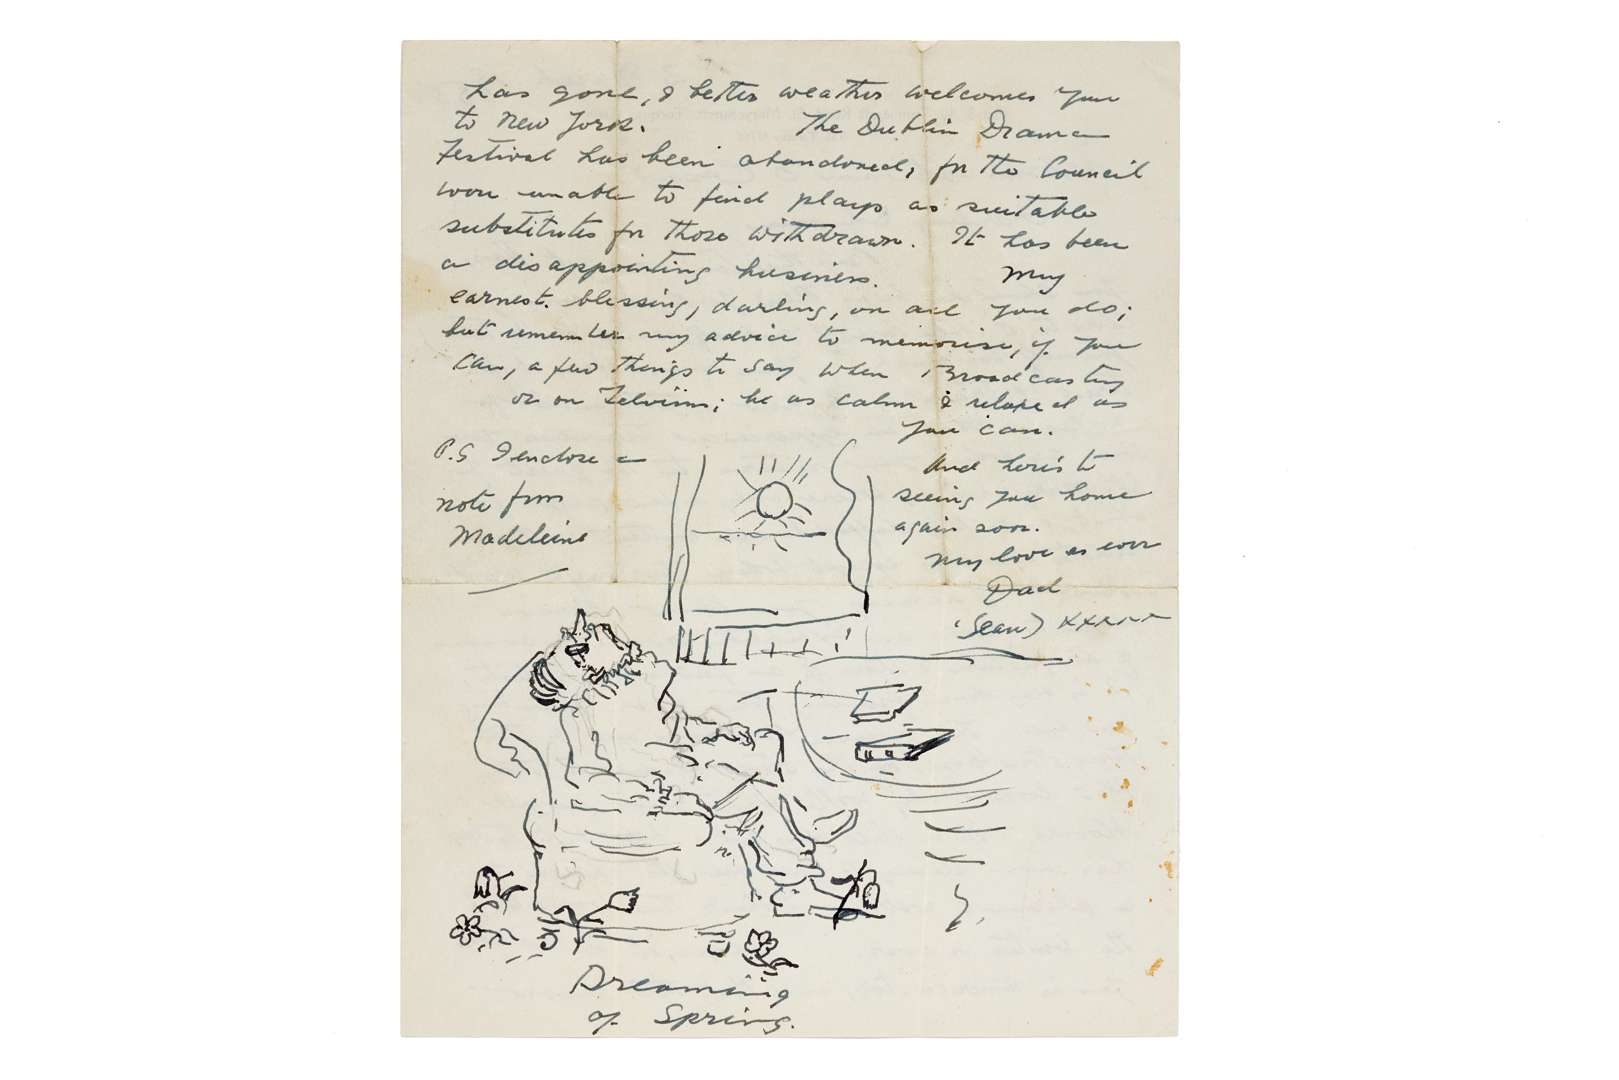 has gone, & better weather welcomes you
to New York. The Dublin Drama
Festival has been abandoned, for the Council
were unable to find plays as suitable
substitutes for those withdrawn. It has been
a disappointing business. My
earnest blessing, darling, on all you do;
but remember my advice to memorise, if you
can, a few things to say when Broadcasting
or on; be as calm & relaxed as
you can.
And here's to
seeing you home
again soon.
My love as ever
Dad
(Sean)
P.S I enclose a
note from
Madeleine
Dreaming
of Spring.